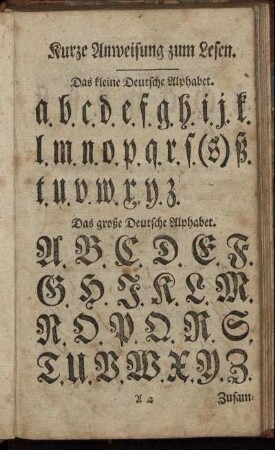 Kurze Anweisung zum Lesen.
Das kleine Deutsche Alphabet.
a. b. c. d. e. f. g. h. i. j. k.
l. m. n. o. p. q. r. ſ. (s) ß.
t. u. v. w. x. y. z.
Das große Deutsche Alphabet.
A. B. C. D. E. F.
G. H. J. K. L. M.
N. O. P. Q. R. S
T. U. V. W. X. Y. Z.
A 2
Zusam-